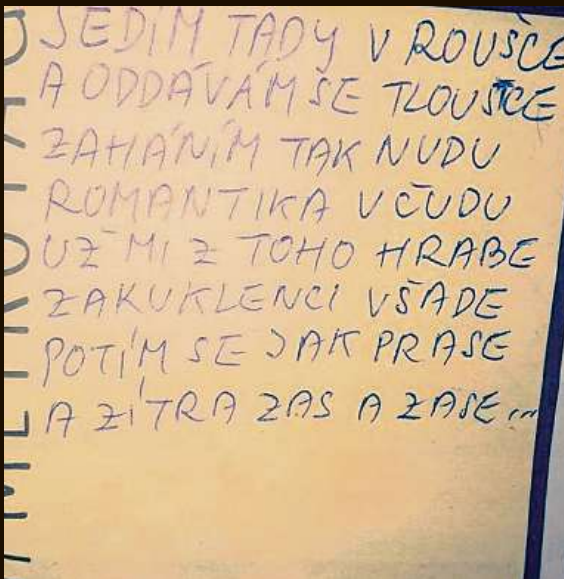 SEDÍM TADY V ROUŠCE
A ODDÁVÁM SE TLOUŠŤCE
ZAHÁNÍM TAK NUDU
ROMANTIKA V ČUDU
UŽ MI Z TOHO HRABE
ZAKUKLENCI VŠADE
POTÍM SE JAK PRASE
A ZÍTRA ZAS A ZASE...